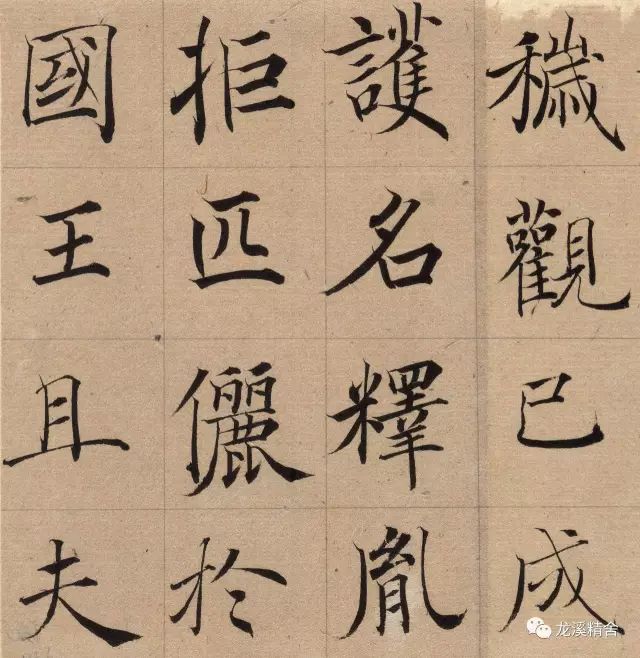 穢觀已成
護名釋胤
拒匹儷於
國王且夫
龙溪精舍